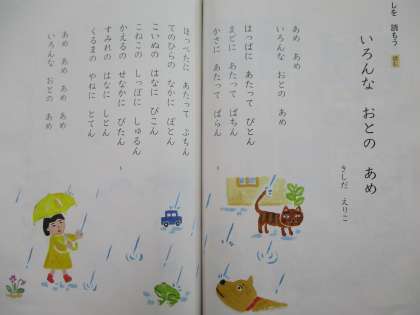 しを 読もう
いろんな おとの あめ
きしだ えりこ
あめ あめ
いろんな おとの あめ
はっぱに あたって ぴとん
まどに あたって ぱちん
かさに あたって ぱらん
ほっぺたに あたって ぷちん
てのひらの なかに ぽとん
こいぬの はなに ぴこん
こねこの しっぽに しゅるん
かえるの せなかに ぴたん
すみれの はなに しとん
くるまの やねに とてん
あめ あめ あめ あめ
いろんな おとの あめ